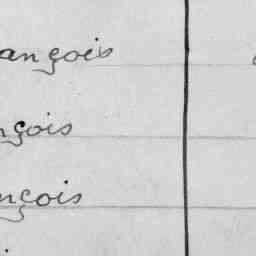 ançois
nçois
nçois